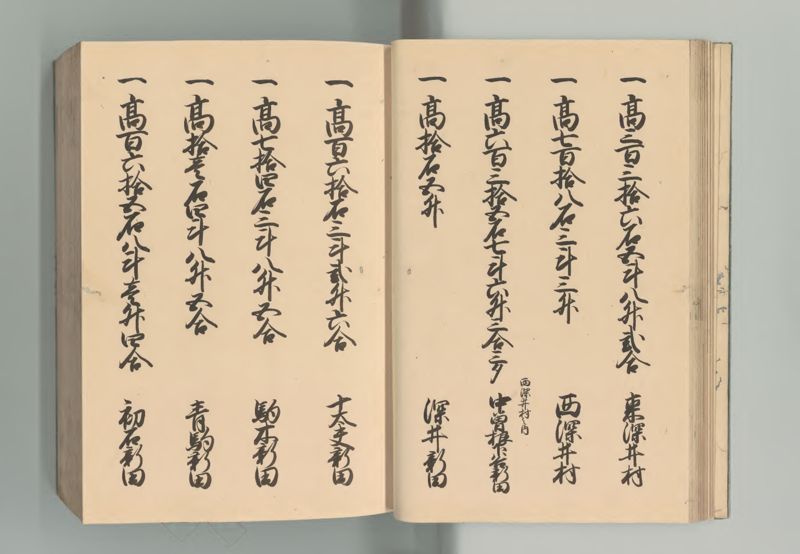 一 高三百三拾六石五斗八升弐合 東深井村
一 高七百拾八石三斗三升 西深井村
西深井村之内
一 高六百三拾五石七斗六升三合三夕 中曽根下谷新田
一 高拾石五升 深井新田
一 高百六拾石三斗弐升六合 十太夫新田
一 高七拾四石三斗八升五合 駒木新田
一 高拾壱石四斗八升五合 青駒新田
一 高百六拾五石八斗壱升四合 初石新田